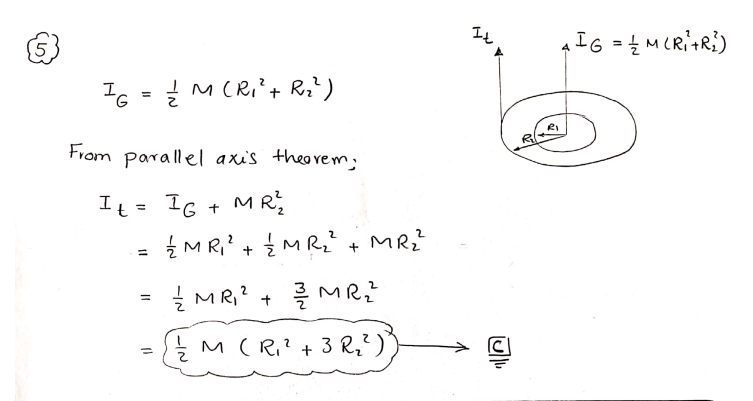 5
I_t
I_G = 1/2 M (R₁² + R₂²)
R₁
R₂
I_G = 1/2 M (R₁² + R₂²)
From parallel axis theorem;
I_t = I_G + MR₂²
= 1/2 MR₁² + 1/2 MR₂² + MR₂²
= 1/2 MR₁² + 3/2 MR₂²
= 1/2 M (R₁² + 3R₂²) → C